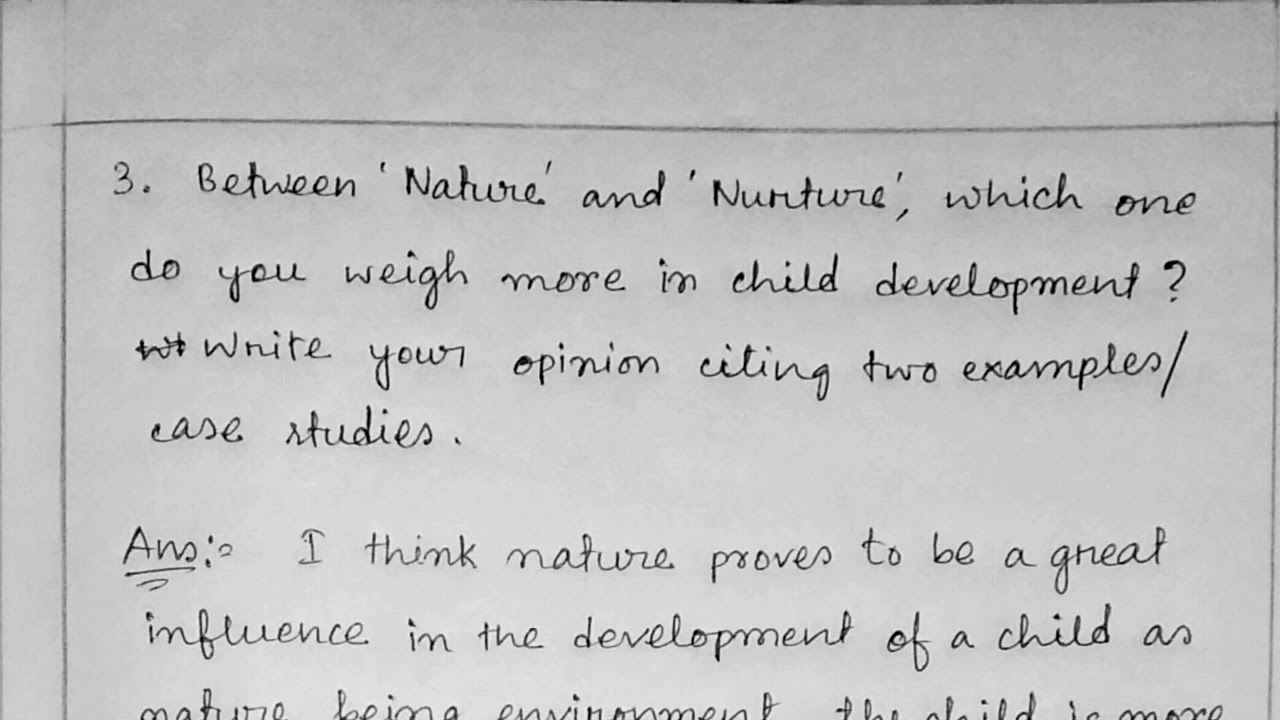 3. Between 'Nature' and 'Nurture', which one
do you weigh more in child development?
Write your opinion citing two examples/
case studies.
Ans:- I think nature proves to be a great
influence in the development of a child as
nature being environment, the child is more